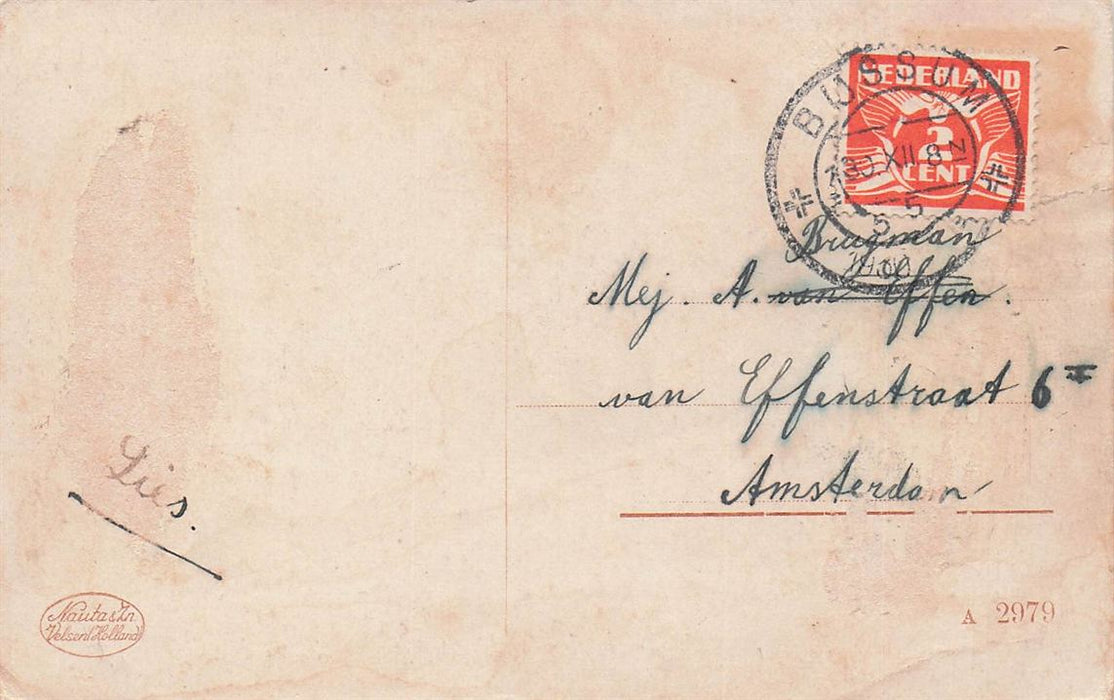 NEDERLAND
3
CENT
BUSSUM
30.XII.8
5
5
Brugman
Mej. A. van Effen.
van Effenstraat 6 II
Amsterdam
Lies.
Nauta & Zn
Velsen Holland
A 2979